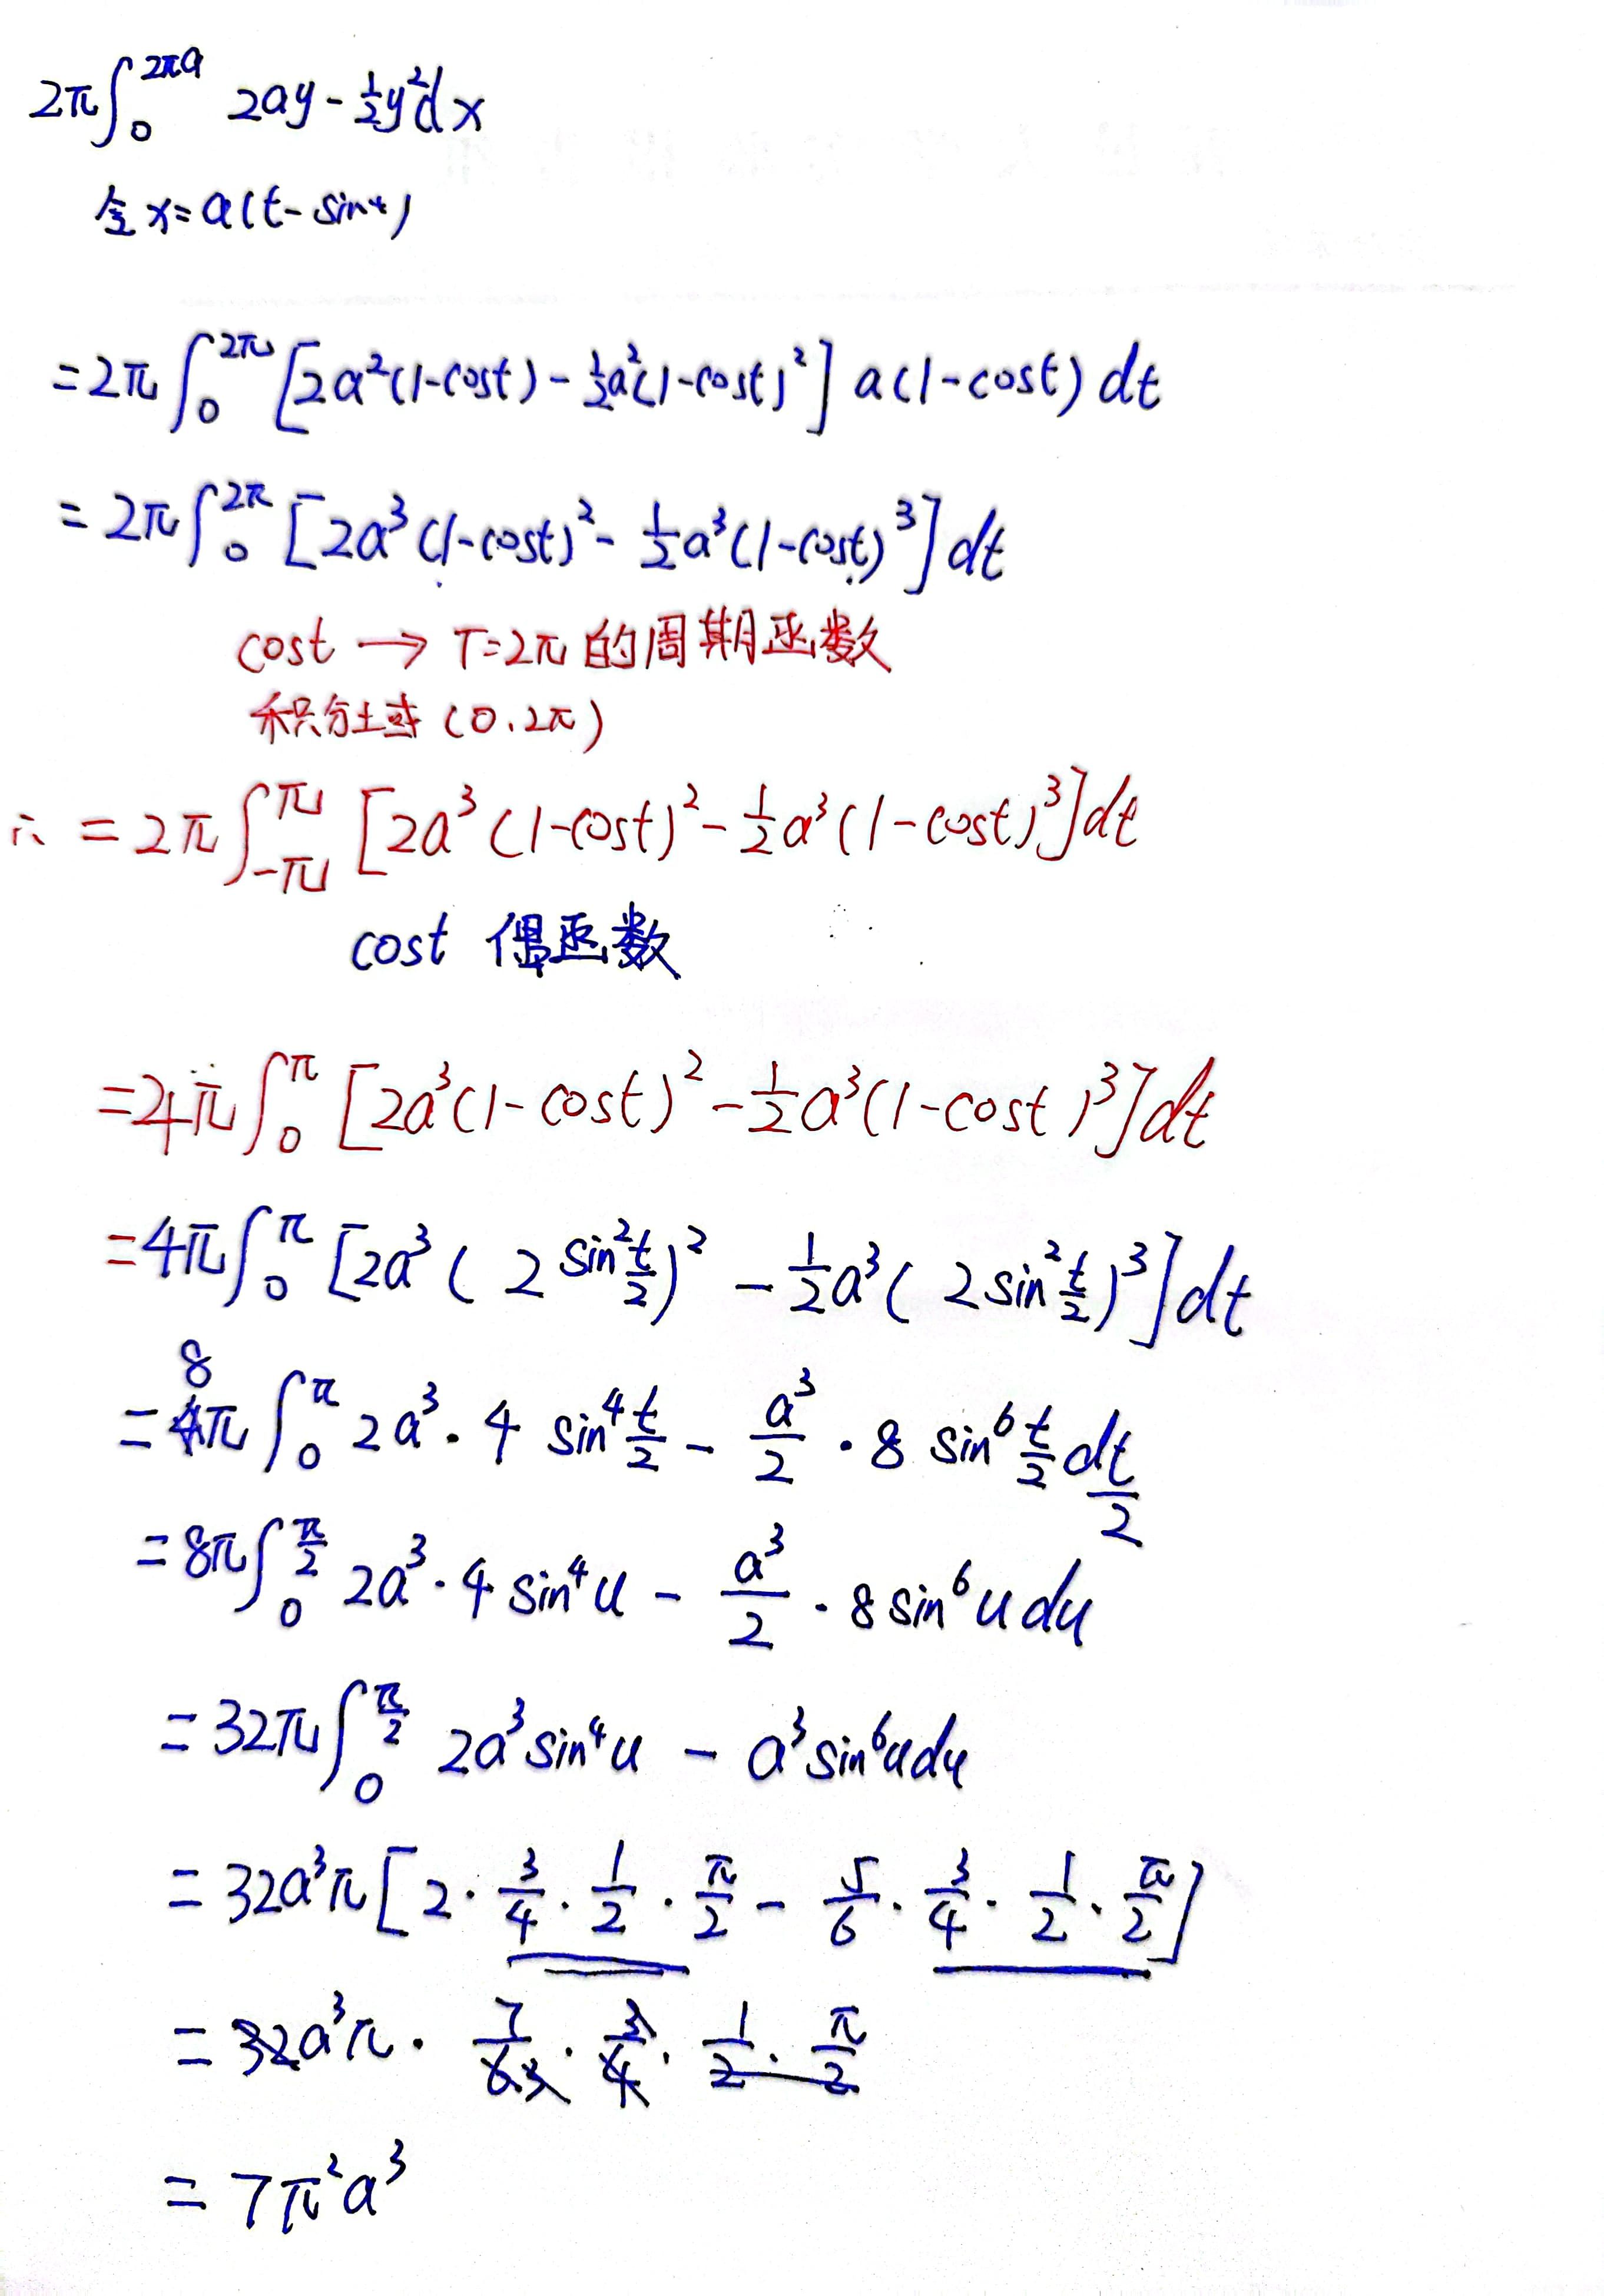 2π∫₀^{2πa} 2ay - ½y²dx
令 x = a(t - sint)
= 2π∫₀^{2π} [2a²(1-cost) - ½a²(1-cost)²] a(1-cost) dt
= 2π∫₀^{2π} [2a³(1-cost)² - ½a³(1-cost)³] dt
cost → T=2π 的周期函数
积分域 (0.2π)
∴ = 2π∫_{-π}^{π} [2a³(1-cost)² - ½a³(1-cost)³] dt
cost 偶函数
= 4π∫₀^{π} [2a³(1-cost)² - ½a³(1-cost)³] dt
= 4π∫₀^{π} [2a³(2sin²\frac{t}{2})² - ½a³(2sin²\frac{t}{2})³] dt
= 8π∫₀^{π} 2a³·4 sin⁴\frac{t}{2} - \frac{a³}{2}·8 sin⁶\frac{t}{2} d\frac{t}{2}
= 8π∫₀^{\frac{π}{2}} 2a³·4 sin⁴u - \frac{a³}{2}·8 sin⁶u du
= 32π∫₀^{\frac{π}{2}} 2a³sin⁴u - a³sin⁶u du
= 32a³π[2·\frac{3}{4}·\frac{1}{2}·\frac{π}{2} - \frac{5}{6}·\frac{3}{4}·\frac{1}{2}·\frac{π}{2}]
= 32a³π·\frac{7}{6}·\frac{3}{4}·\frac{1}{2}·\frac{π}{2}
= 7π²a³